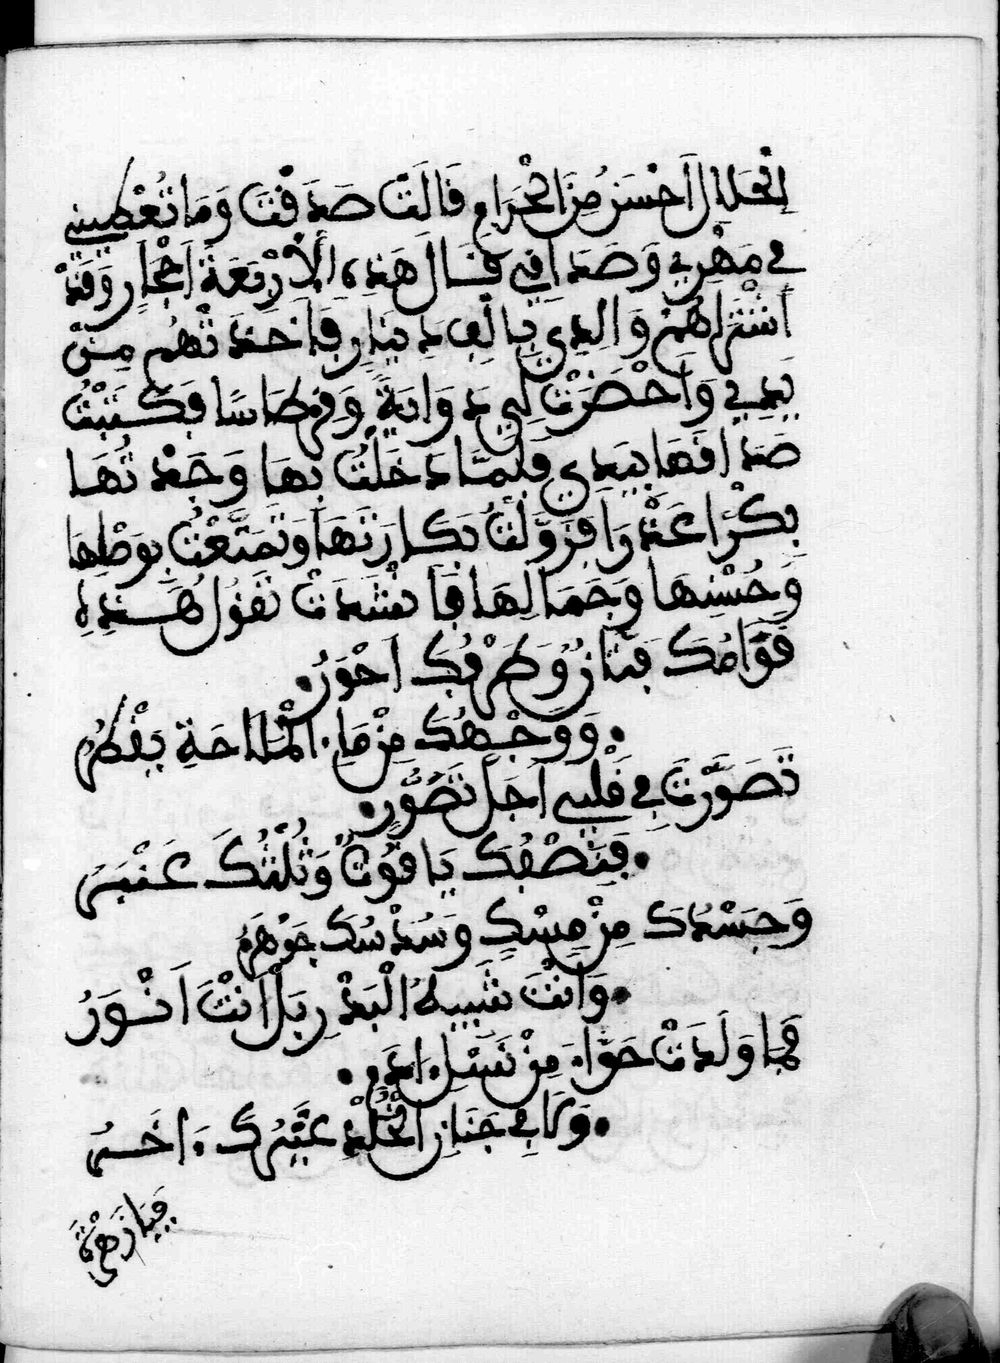 الْحَلالَ أَحْسَنُ مِنَ الْحَرَامِ قَالَتْ صَدَقْتَ وَمَا تُعْطِينِي
فِي مَهْرِي وَصَدَاقِي فَقَالَ هَذِهِ الْأَرْبَعَةُ أَحْجَارٍ وَقَدْ
اشْتَرَاهُمْ وَالِدِي بِأَلْفِ دِينَارٍ فَأَخَذَتْهُمْ مِنْ
يَدِي وَأَحْضَرَتْ لِي دَوَايَةً وَقِرْطَاسًا فَكَتَبْتُ
صَدَاقَهَا بِيَدِي فَلَمَّا دَخَلْتُ بِهَا وَجَدْتُهَا
بِكْرًا عَذْرَا فَزَوَّلْتُ بَكَارَتَهَا وَتَمَتَّعْتُ بِوَطْئِهَا
وَحُسْنِهَا وَجَمَالِهَا فَأَنْشَدَتْ تَقُولُ هَذِهِ
قَوَامُكَ فَتَّانٌ وَطَرْفُكَ أَحْوَرُ
وَوَجْهُكَ مِنْ مَاءِ الْمَلَاحَةِ يَقْطُرُ
تَصَوَّرْتَ فِي قَلْبِي أَجَلَّ تَصَوُّرٍ
فَنِصْفُكَ يَاقُوتٌ وَثُلْثُكَ عَنْبَرُ
وَخُمْسُكَ مِنْ مِسْكٍ وَسُدْسُكَ جَوْهَرُ
وَأَنْتَ شَبِيهُ الْبَدْرِ بَلْ أَنْتَ أَنْوَرُ
فَمَا وَلَدَتْ حَوَّاءُ مِنْ نَسْلِ آدَمَ
وَلَا فِي جَنَانِ الْخُلْدِ غَيْرُكَ آخَرُ